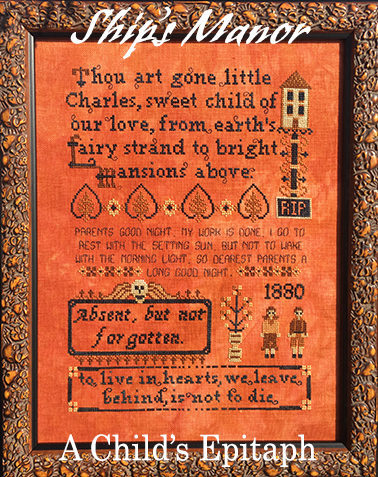 Ship's Manor
Thou art gone little
Charles, sweet child of
our love, from earth's
fairy strand to bright
mansions above.
RIP
PARENTS GOOD NIGHT, MY WORK IS DONE, I GO TO
REST WITH THE SETTING SUN, BUT NOT TO WAKE
WITH THE MORNING LIGHT, SO DEAREST PARENTS A
LONG GOOD NIGHT.
1880
Absent, but not
forgotten.
to live in hearts, we leave
behind, is not to die.
A Child's Epitaph